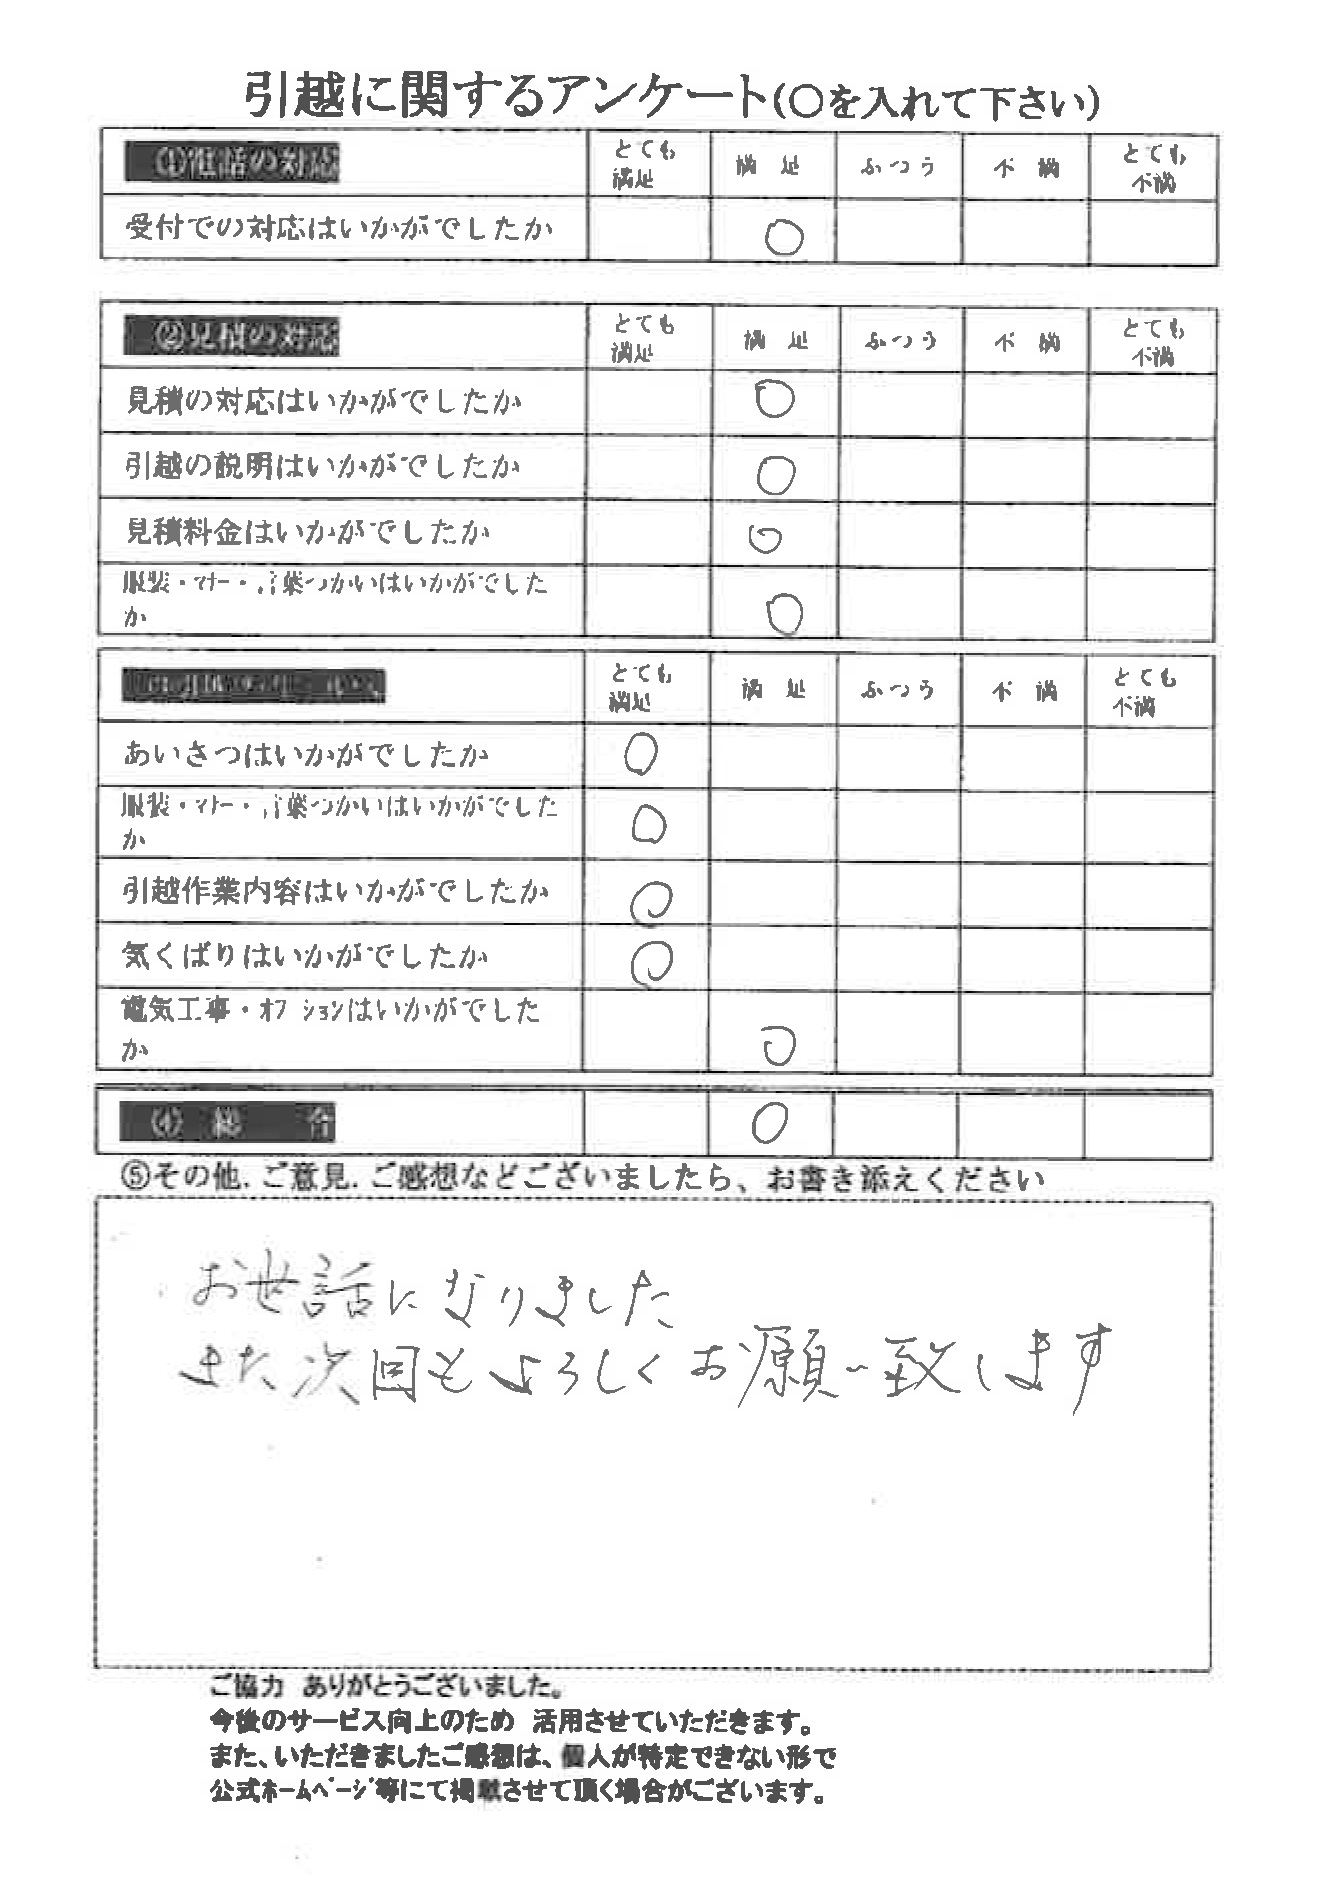 引越に関するアンケート(〇を入れて下さい)
①電話の対応 とても満足 満足 ふつう 不満 とても不満
受付での対応はいかがでしたか 〇
②見積の対応 とても満足 満足 ふつう 不満 とても不満
見積の対応はいかがでしたか 〇
引越の説明はいかがでしたか 〇
見積料金はいかがでしたか 〇
服装・マナー・言葉つかいはいかがでした
か 〇
とても満足 満足 ふつう 不満 とても不満
あいさつはいかがでしたか 〇
服装・マナー・言葉つかいはいかがでした
か 〇
引越作業内容はいかがでしたか 〇
気くばりはいかがでしたか 〇
電気工事・オプションはいかがでした
か 〇
④総合 〇
⑤その他.ご意見.ご感想などございましたら、お書き添えください
お世話になりました
また次回もよろしくお願い致します
ご協力 ありがとうございました。
今後のサービス向上のため 活用させていただきます。
また、いただきましたご感想は、個人が特定できない形で
公式ホームページ等にて掲載させて頂く場合がございます。